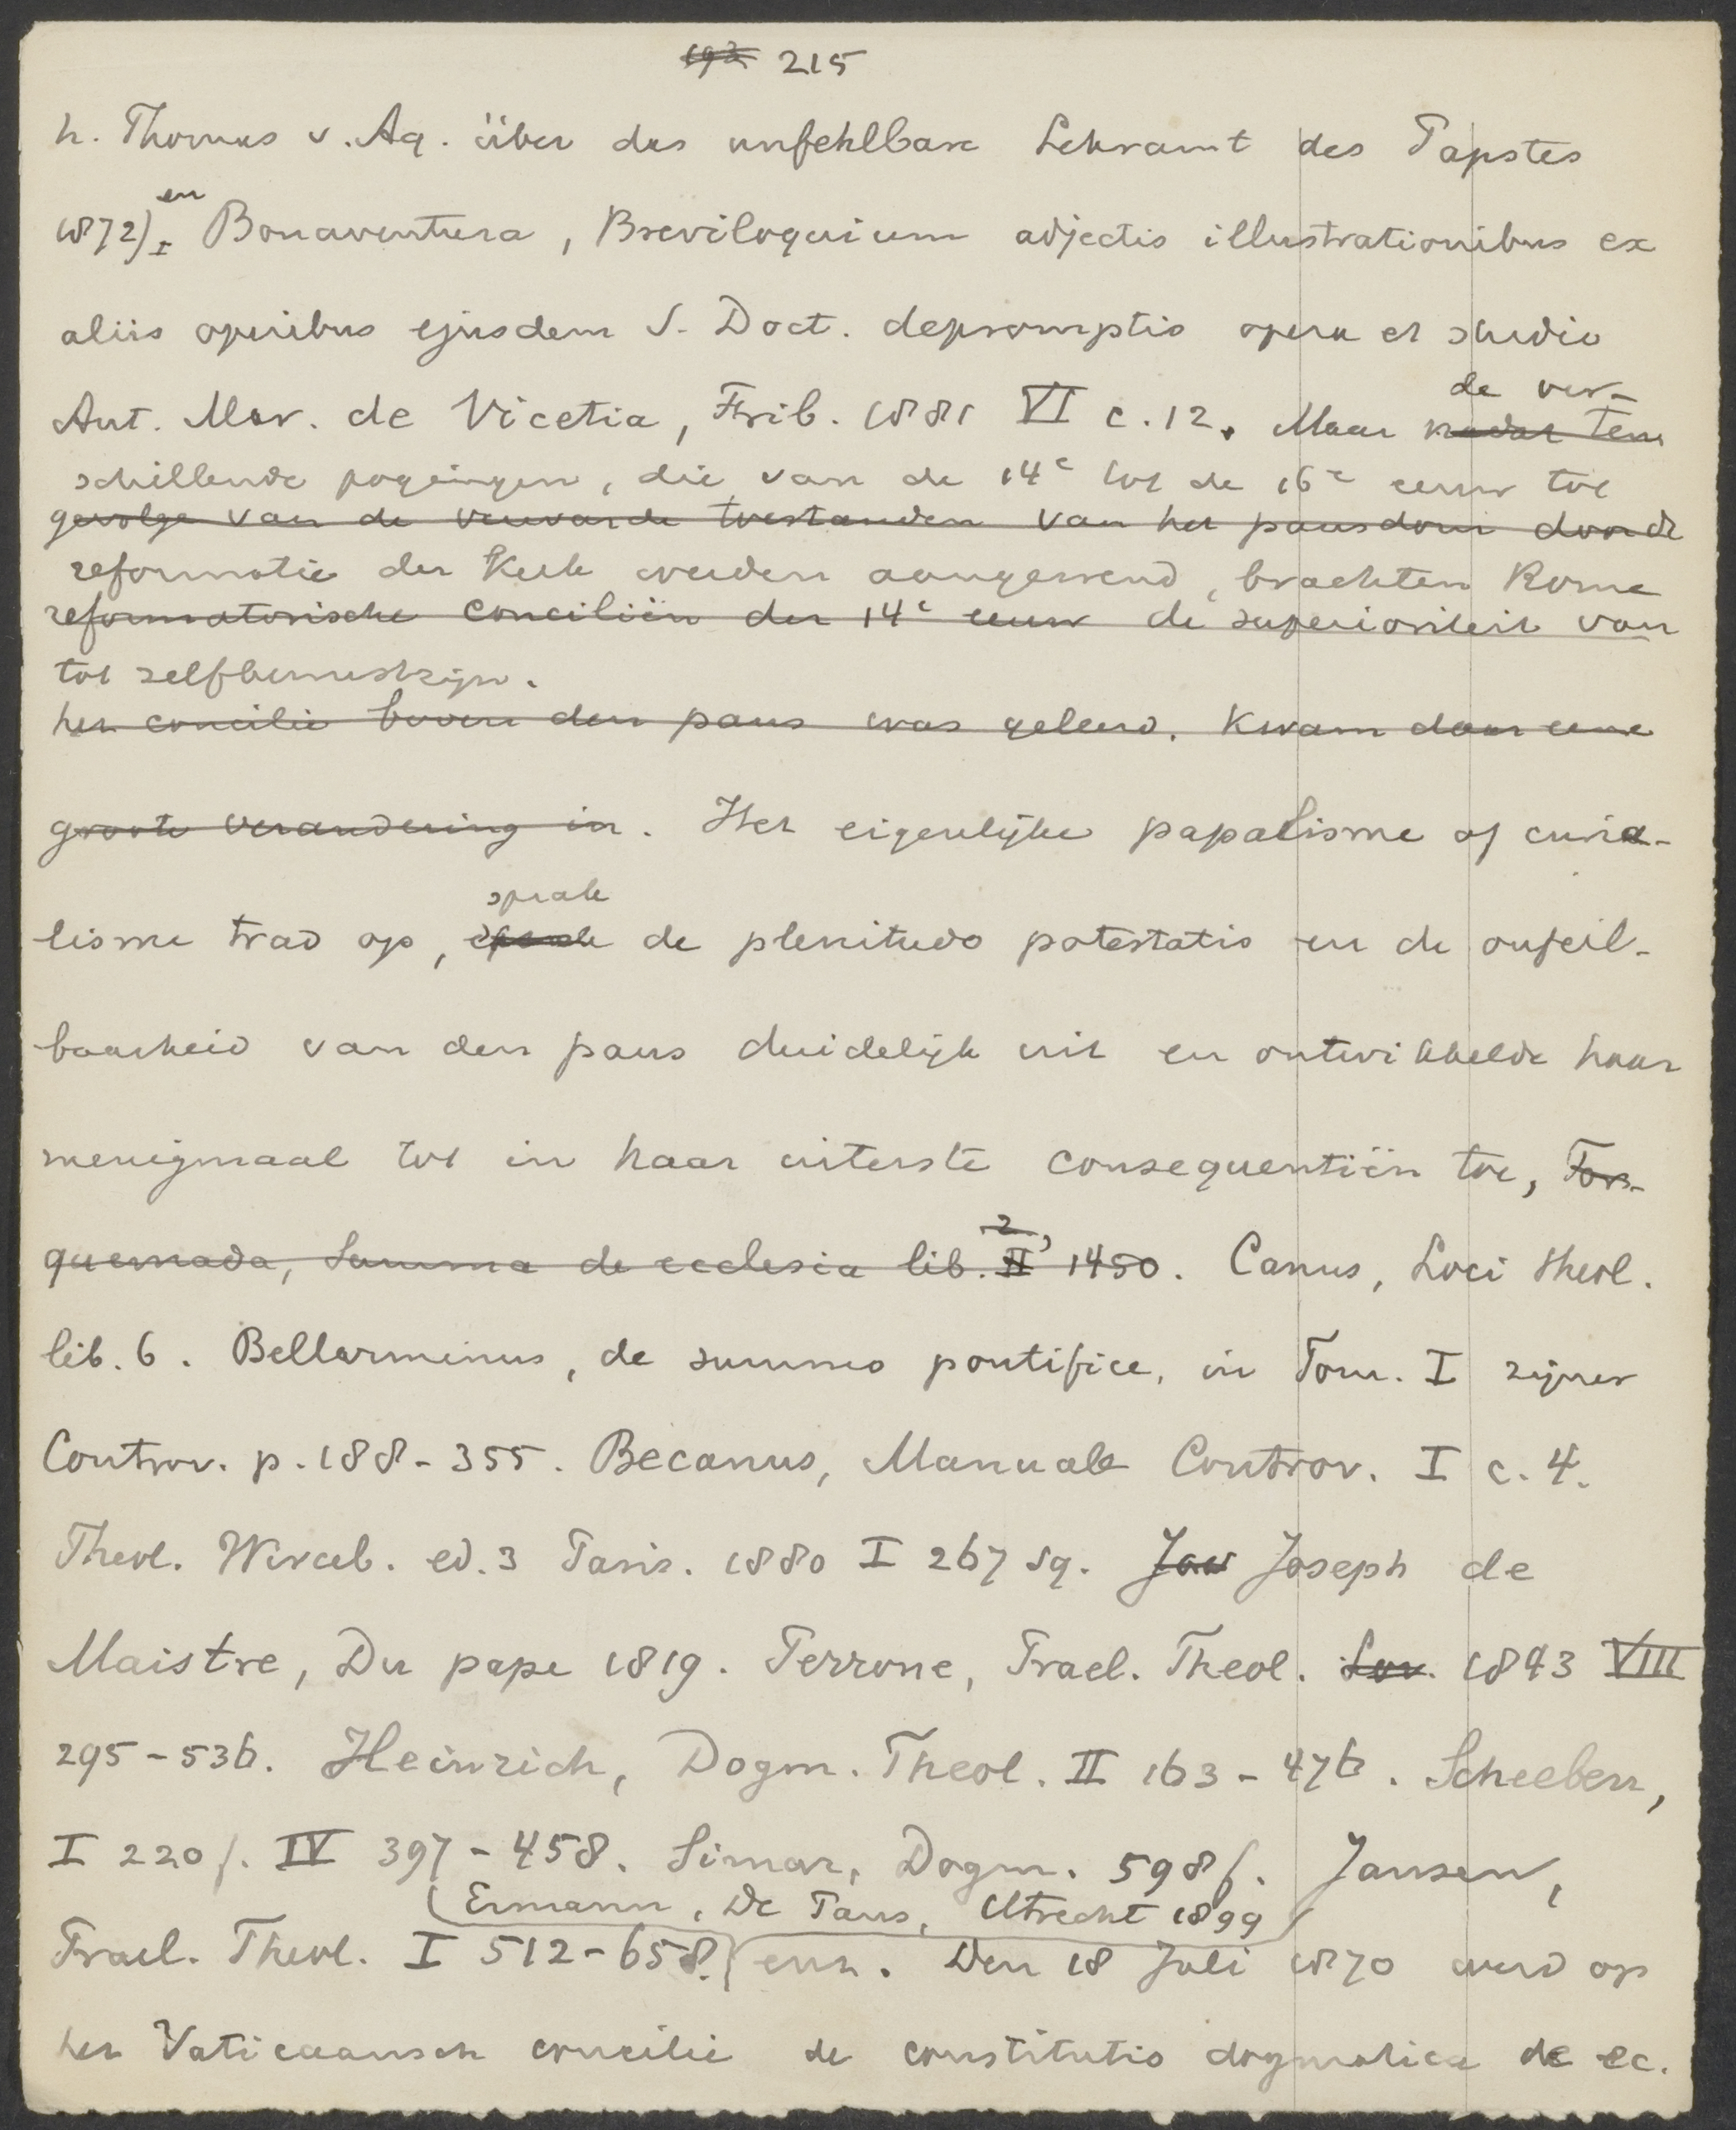 192 215
h. Thomas v. Aq. über das unfehlbare Lehramt des Papstes
1872), en Bonaventura, Breviloquium adjectis illustrationibus ex
aliis operibus ejusdem S. Doct. depromptis opera et studio
de ver-
Ant. Mar. de Vicetia, Frib. 1881 VI c. 12. Maar nadat ten
schillende pogingen, die van de 14e tot de 16e eeuw tot
gevolge van de verwarde toestanden van het pausdom door de
reformatie der Kerk werden aangewend, brachten Rome
reformatorische conciliën der 14e eeuw de superioriteit van
tot zelfbewustzijn.
het concilie boven den paus was geleerd. Kwam daar eene
groote verandering in. Het eigenlijke papalisme of curia-
sprak
lisme trad op, sprak de plenitudo potestatis en de onfeil-
baarheid van den paus duidelijk uit en ontwikkelde haar
menigmaal tot in haar uiterste consequentiën toe, Tor-
2,
quemada, Summa de ecclesia lib. II 1450. Canus, Loci theol.
lib. 6. Bellarminus, de summo pontifice, in Tom. I zijner
Controv. p. 188-355. Becanus, Manuale Controv. I c. 4.
Theol. Wirceb. ed. 3 Paris. 1880 I 267 sq. Jos Joseph de
Maistre, Du pape 1819. Perrone, Prael. Theol. Lov. 1843 VIII
295-536. Heinrich, Dogm. Theol. II 163-476. Scheeben,
I 220 f. IV 397-458. Simar, Dogm. 598 f. Jansen,
(Ermann, De Paus, Utrecht 1899)
Prael. Theol. I 512-658. enz. Den 18 Juli 1870 werd op
het Vaticaansch concilie de constitutio dogmatica de ec.